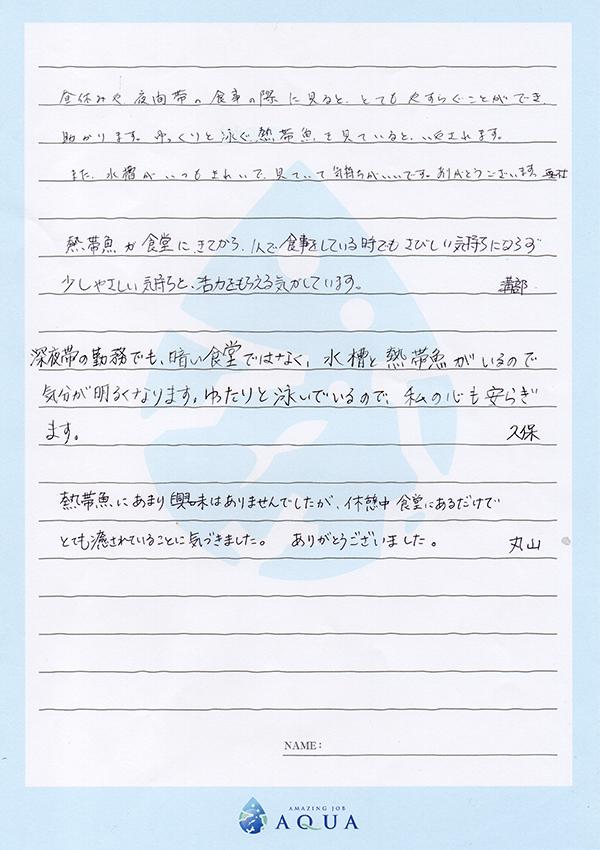 昼休みや夜間帯の食事の際に見ると、とてもやすらぐことができ、
助かります。ゆっくりと泳ぐ熱帯魚を見ていると、いやされます。
また、水槽がいつもきれいで、見ていて気持ちがいいです。ありがとうございます。
熱帯魚が食堂にきてから、1人で食事をしている時でもさびしい気持ちにならず
少しやさしい気持ちと、活力をもらえる気がしています。 溝部
深夜帯の勤務でも、暗い食堂ではなく、水槽と熱帯魚がいるので
気分が明るくなります。ゆったりと泳いでいるので、私の心も安らぎ
ます。 久保
熱帯魚にあまり興味はありませんでしたが、休憩中食堂にあるだけで
とても癒されていることに気づきました。 ありがとうございました。 丸山
NAME:
AMAZING JOB
AQUA